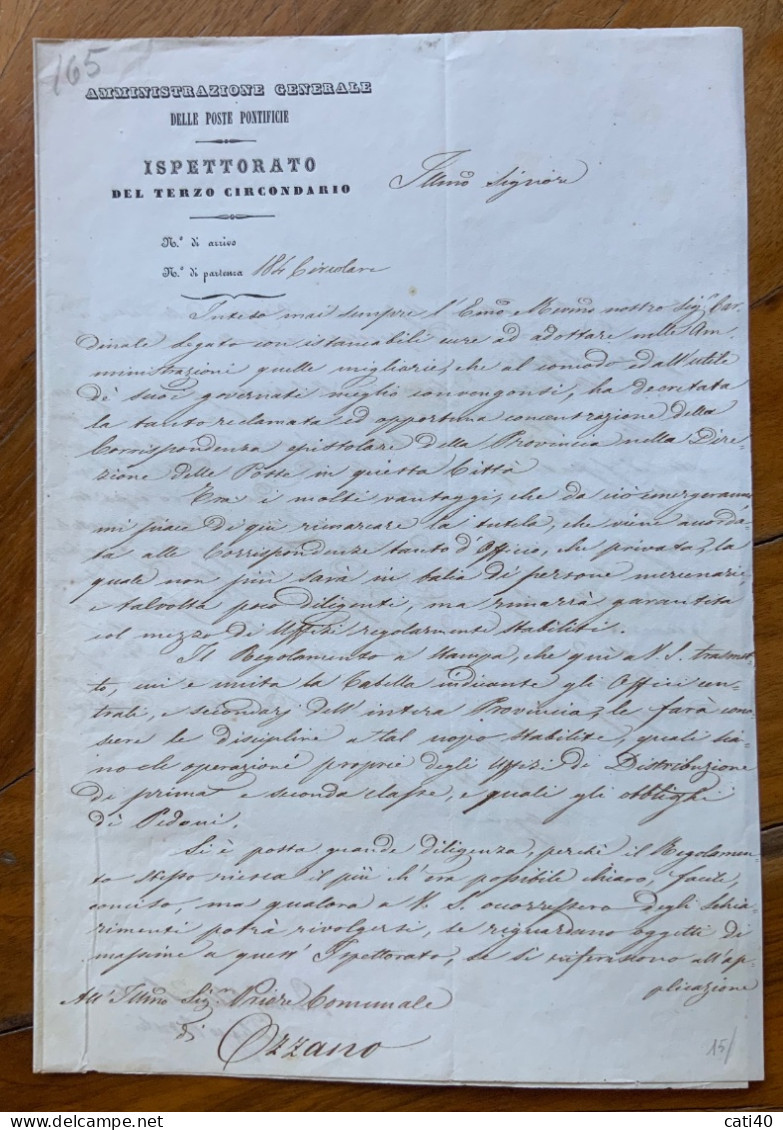 165
AMMINISTRAZIONE GENERALE
DELLE POSTE PONTIFICIE
ISPETTORATO
DEL TERZO CIRCONDARIO
Illmo Signore
N.° di arrivo
N.° di partenza 184 Circolare
Inteso mai sempre l'Emo nostro Sigr Car
dinale Legato con istancabili cure ad adottare nelle Am
ministrazioni quelle migliorie, che al comodo ed all'utile
di suoi governati meglio convengonsi, ha decretata
la tanto reclamata ed opportuna concentrazione della
Corrispondenza epistolare della Provincia nella Dire
zione delle Poste in questa Città
Tra i molti vantaggi, che da ciò emergeranno
mi piace di qui rimarcare la tutela, che viene accorda
ta alle Corrispondenze tanto d'Officio, che private, la
quale non più sarà in balia di persone mercenarie
e talvolta poco diligenti, ma rimarrà garantita
col mezzo di Uffizi regolarmente stabiliti.
Il Regolamento a stampa, che qui a V. S. trasmet
to, cui è unita la Tabella indicante gli Offici cen
trali, e secondarj dell'intera Provincia, le farà cono
scere le discipline a tal uopo stabilite, quali sia
no le operazioni proprie degli Uffizi di Distribuzione
di prima e seconda classe, e quali gli obblighi
di Pedoni.
Si è posta grande diligenza, perchè il Regolamen
to stesso riesca il più ch'era possibile chiaro, facile,
conciso, ma qualora a V. S. occorressero degli schia
rimenti potrà rivolgersi, se riguardano oggetti di
massime a quest'Ispettorato, se si riferiscono all'ap
plicazione
All'Illmo Sigr Priore Comunale
di
Ozzano
15/
cati40